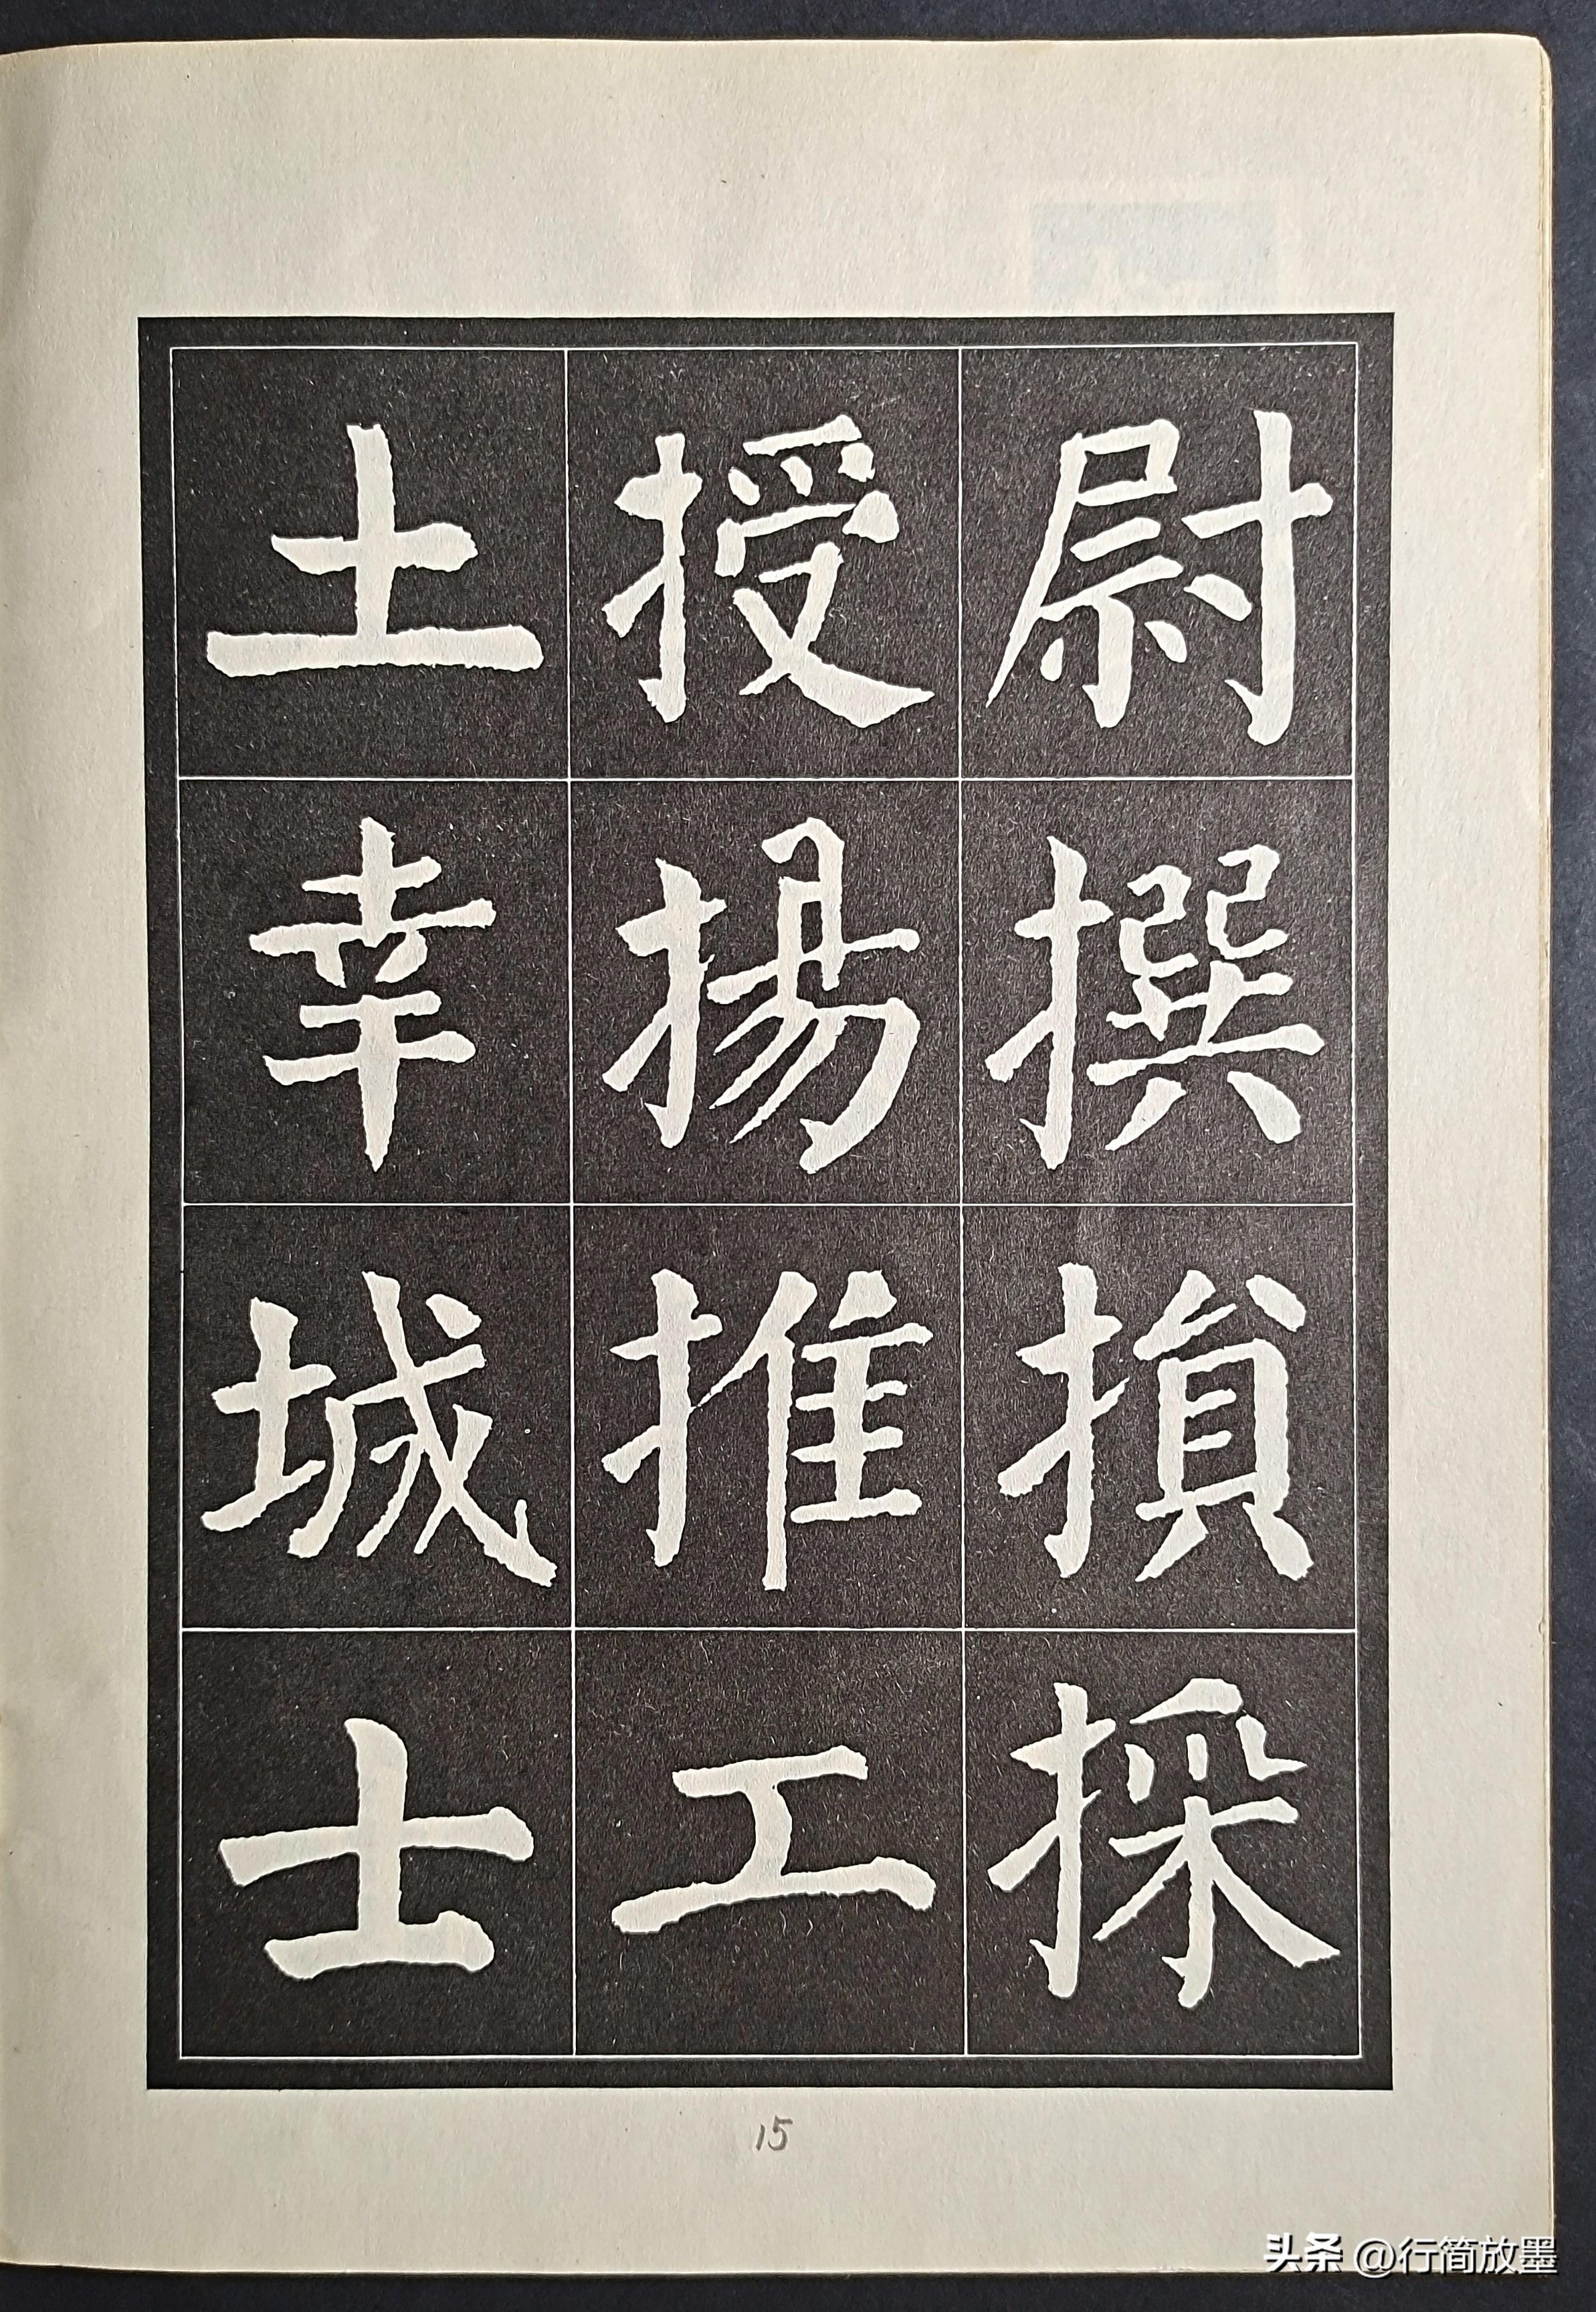 尉撰損採
授揚推工
土幸城士
15
头条 @行简放墨